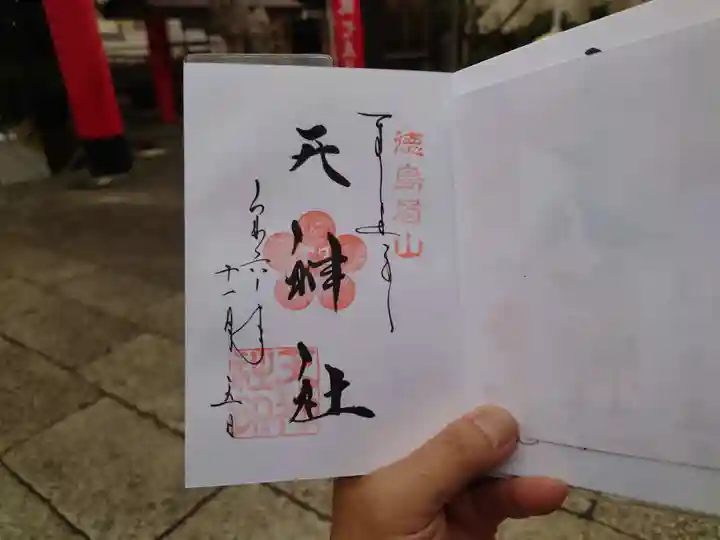 徳島眉山
奉拝
天神社
令和六年
十一月五日
天神社印